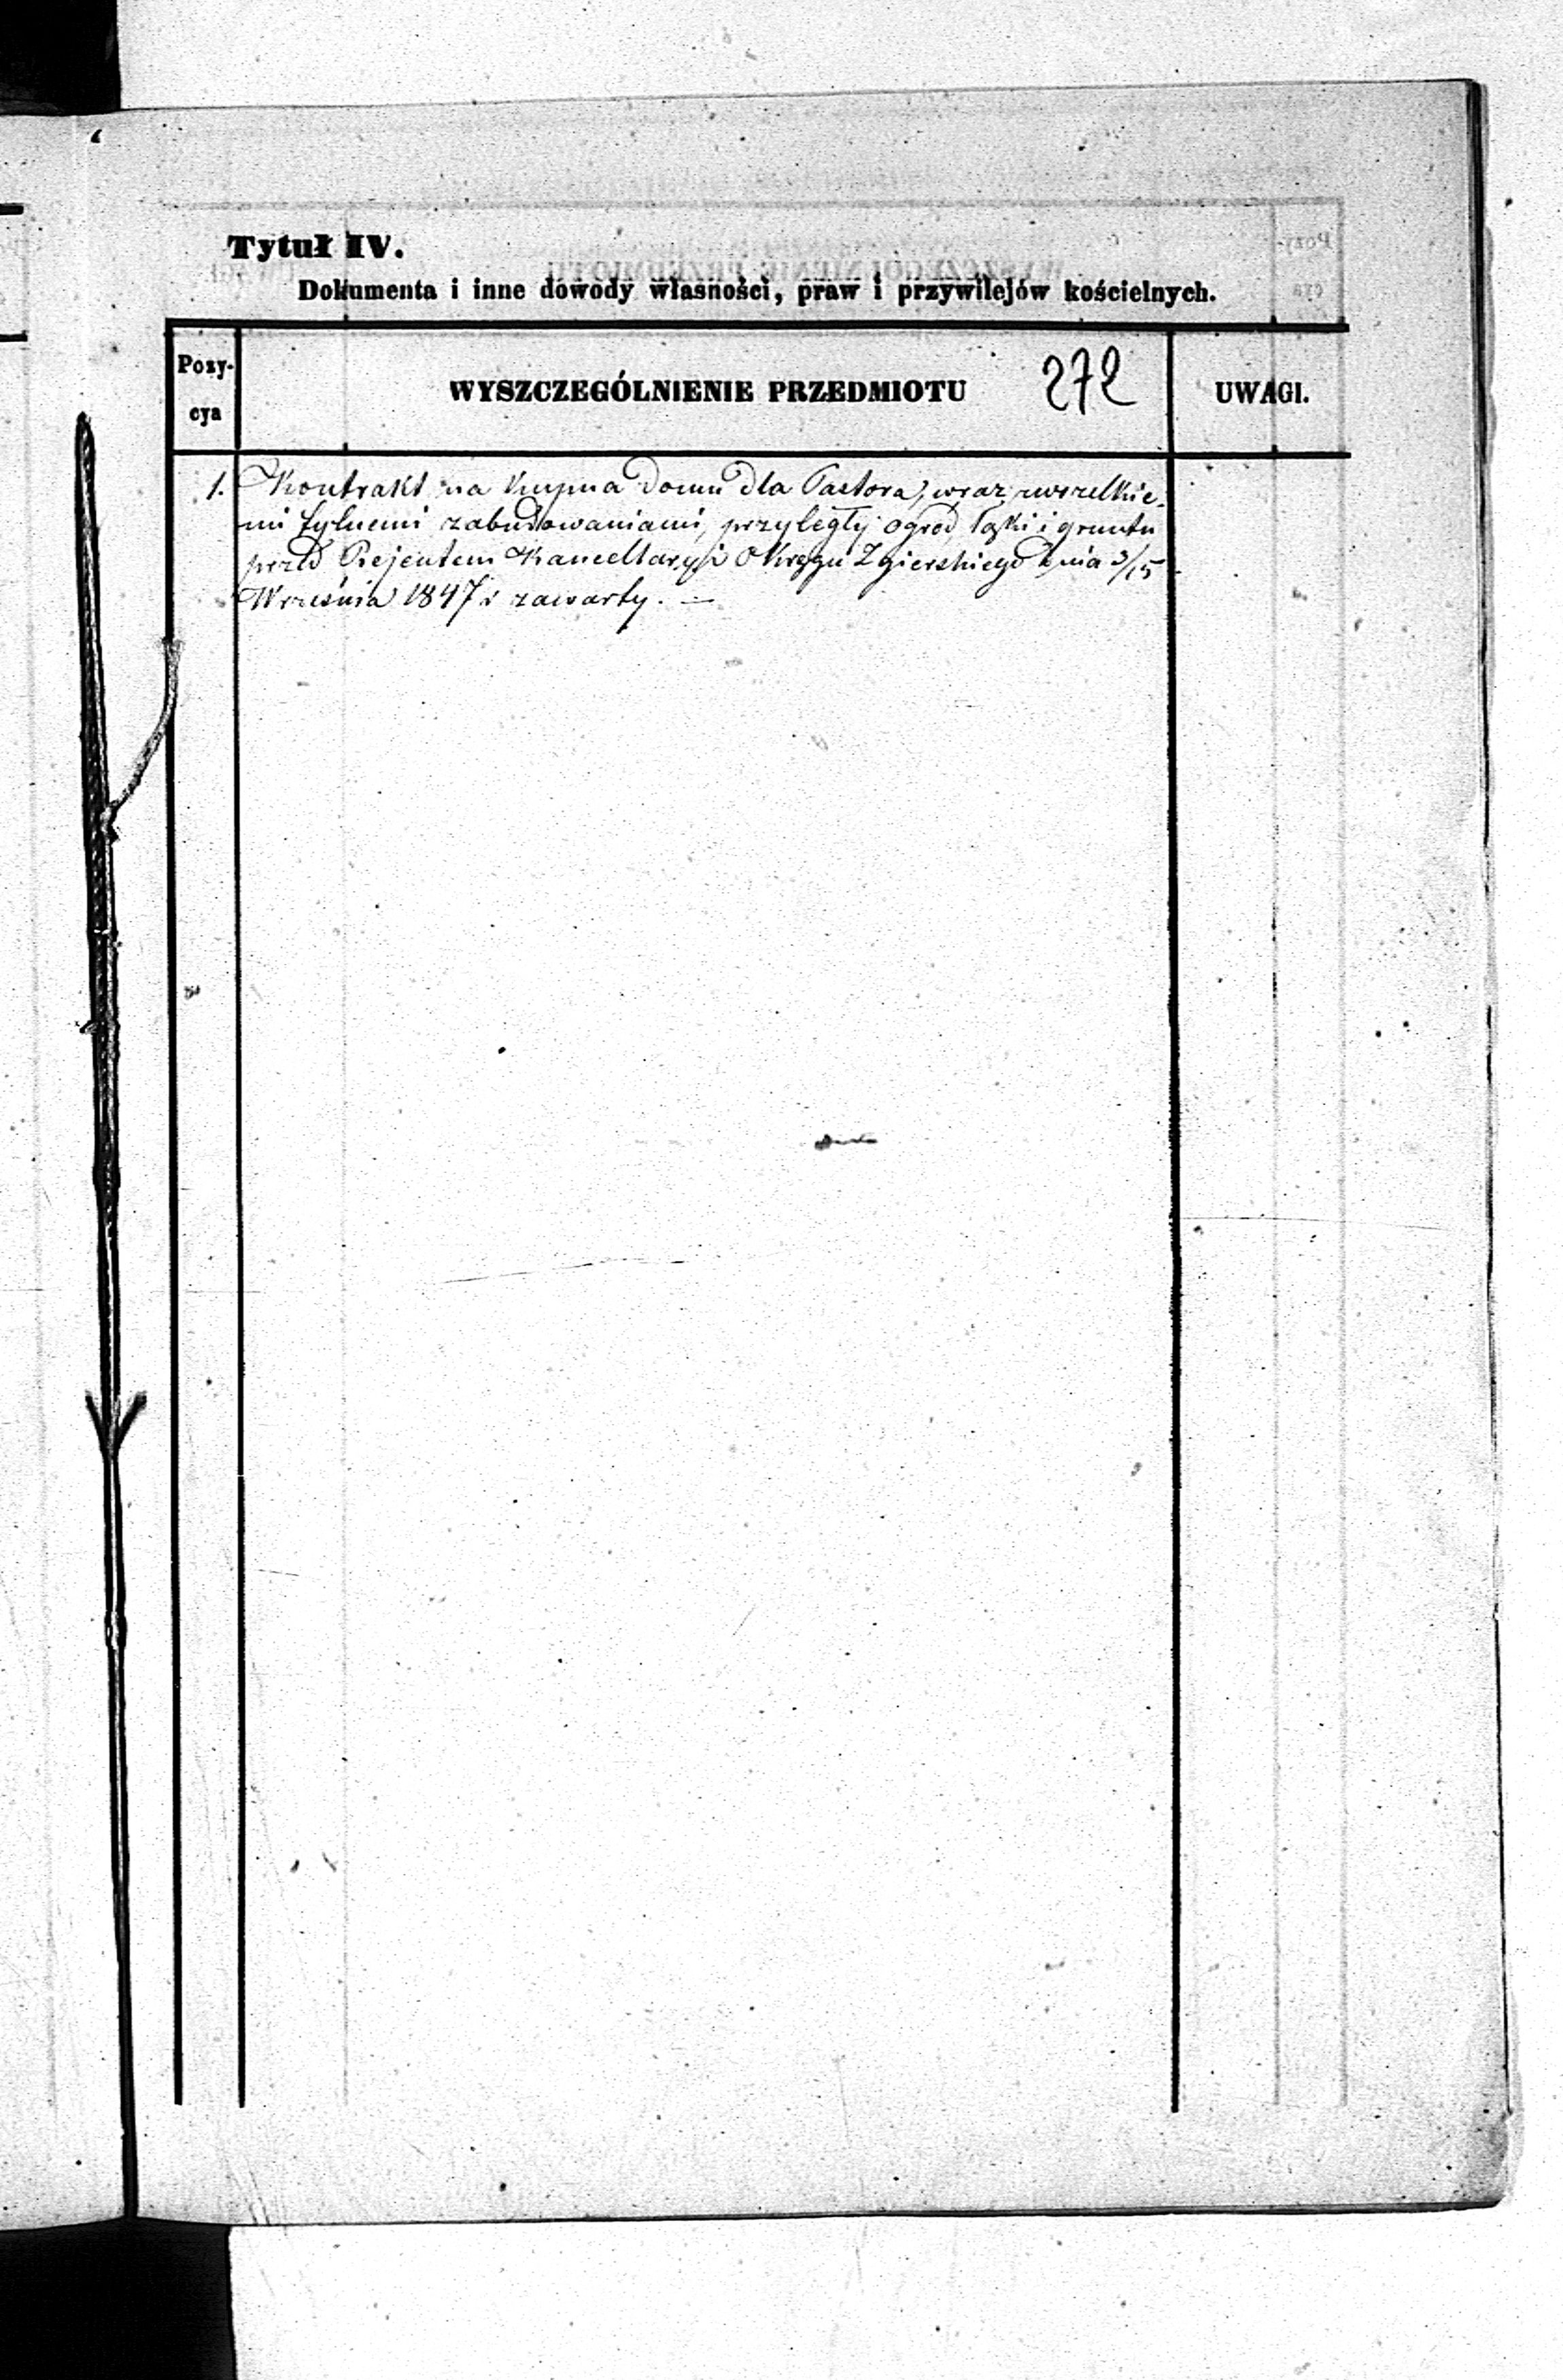 Tytuł IV.
Dokumenta i inne dowody własności, praw i przywilejów kościelnych.
Pozy-
cya
WYSZCZEGÓLNIENIE PRZEDMIOTU
272
UWAGI.
1. Kontrakt na kupna Domu dla Pastora, wraz z wszelkie-
mi tylnemi zabudowaniami, przyległy ogród, łąki i gruntu
przed Rejentem Kancellaryi Okręgu Zgierskiego dnia 3/15
Września 1847 r zawarty. —